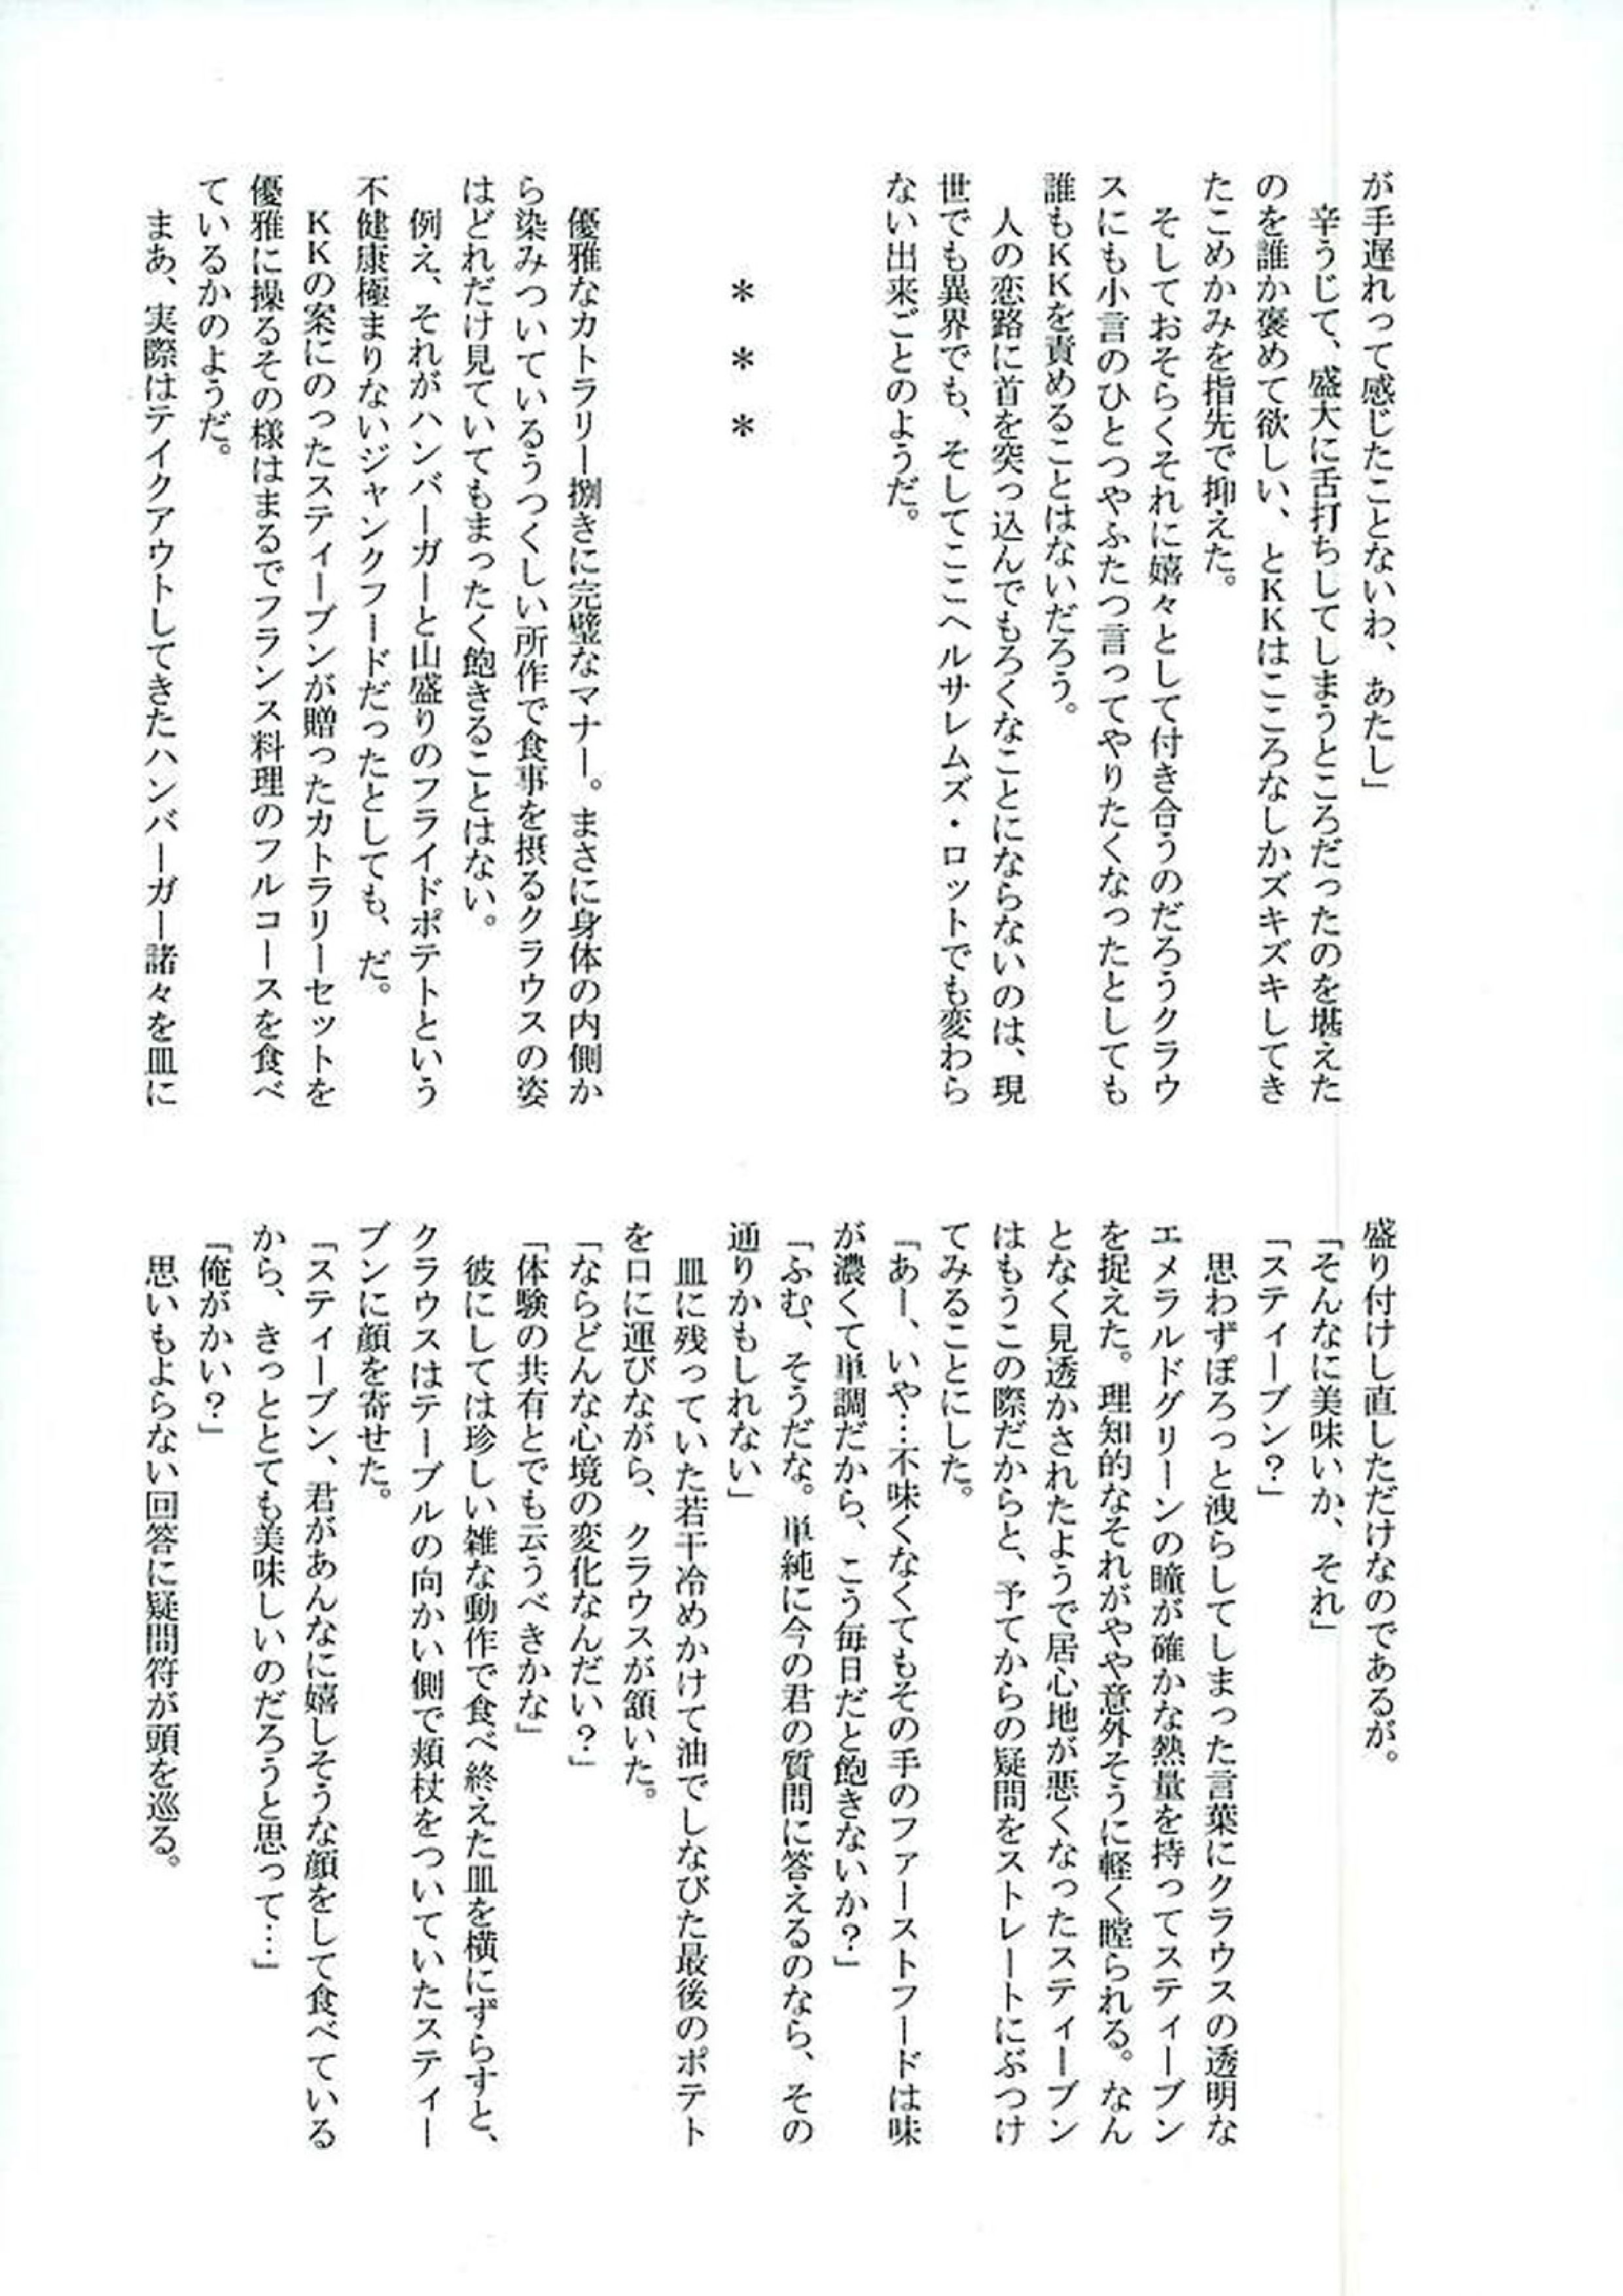 が手遅れって感じたことないわ、あたし」
　辛うじて、盛大に舌打ちしてしまうところだったのを堪えた
のを誰か褒めて欲しい、とＫＫはこころなしかズキズキしてき
たこめかみを指先で抑えた。
　そしておそらくそれに嬉々として付き合うのだろうクラウ
スにも小言のひとつやふたつ言ってやりたくなったとしても
誰もＫＫを責めることはないだろう。
　人の恋路に首を突っ込んでもろくなことにならないのは、現
世でも異界でも、そしてここヘルサレムズ・ロットでも変わら
ない出来ごとのようだ。
＊　＊　＊
　優雅なカトラリー捌きに完璧なマナー。まさに身体の内側か
ら染みついているうつくしい所作で食事を摂るクラウスの姿
はどれだけ見ていてもまったく飽きることはない。
　例え、それがハンバーガーと山盛りのフライドポテトという
不健康極まりないジャンクフードだったとしても、だ。
　ＫＫの案にのったスティーブンが贈ったカトラリーセットを
優雅に操るその様はまるでフランス料理のフルコースを食べ
ているかのようだ。
　まあ、実際はテイクアウトしてきたハンバーガー諸々を皿に
盛り付けし直しただけなのであるが。
「そんなに美味いか、それ」
「スティーブン？」
　思わずぽろっと洩らしてしまった言葉にクラウスの透明な
エメラルドグリーンの瞳が確かな熱量を持ってスティーブン
を捉えた。理知的なそれがやや意外そうに軽く瞠られる。なん
となく見透かされたようで居心地が悪くなったスティーブン
はもうこの際だからと、予てからの疑問をストレートにぶつけ
てみることにした。
「あー、いや…不味くなくてもその手のファーストフードは味
が濃くて単調だから、こう毎日だと飽きないか？」
「ふむ、そうだな。単純に今の君の質問に答えるのなら、その
通りかもしれない」
　皿に残っていた若干冷めかけて油でしなびた最後のポテト
を口に運びながら、クラウスが頷いた。
「ならどんな心境の変化なんだい？」
「体験の共有とでも云うべきかな」
　彼にしては珍しい雑な動作で食べ終えた皿を横にずらすと、
クラウスはテーブルの向かい側で頬杖をついていたスティー
ブンに顔を寄せた。
「スティーブン、君があんなに嬉しそうな顔をして食べている
から、きっととても美味しいのだろうと思って…」
「俺がかい？」
　思いもよらない回答に疑問符が頭を巡る。